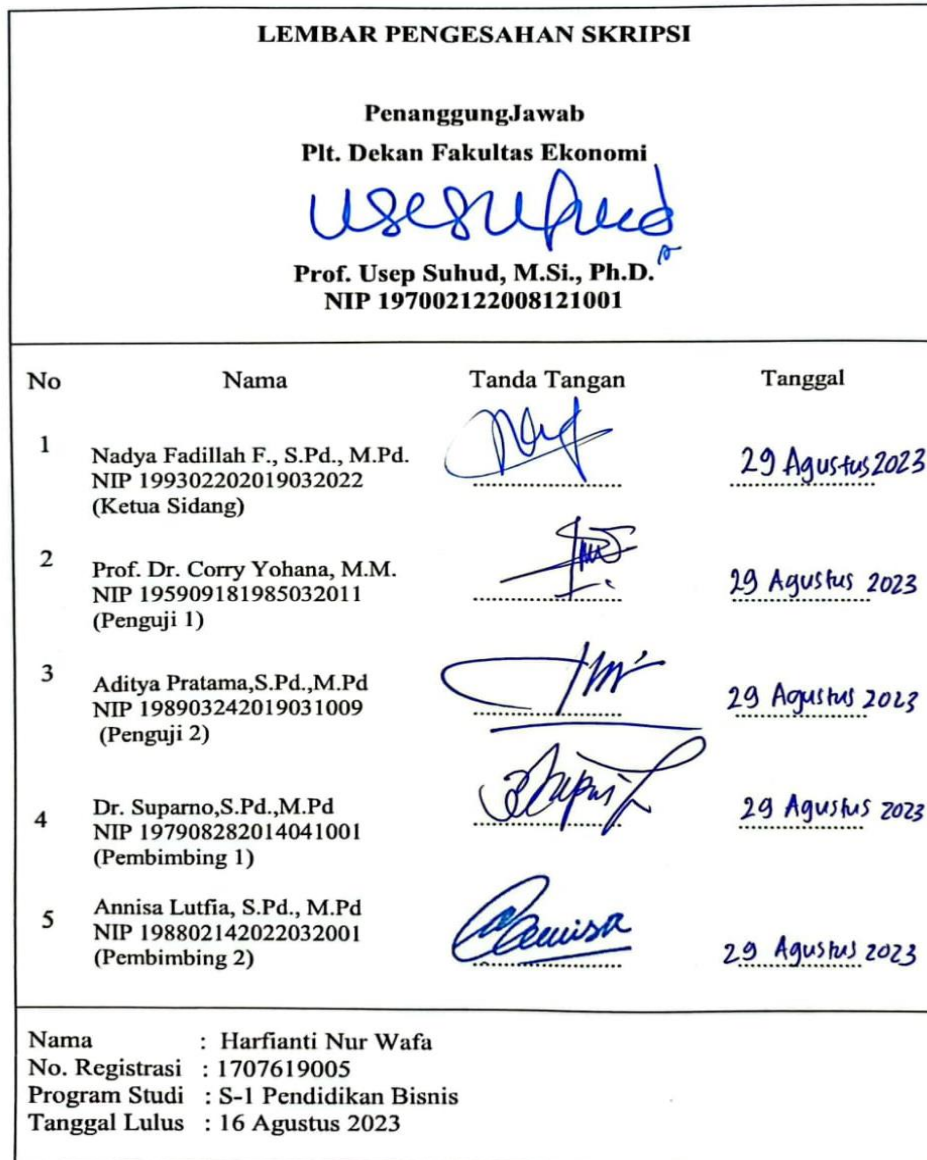 LEMBAR PENGESAHAN SKRIPSI
PenanggungJawab
Plt. Dekan Fakultas Ekonomi
Prof. Usep Suhud, M.Si., Ph.D.
NIP 197002122008121001
No Nama Tanda Tangan Tanggal
1 Nadya Fadillah F., S.Pd., M.Pd. 29 Agustus 2023
NIP 199302202019032022
(Ketua Sidang)
2 Prof. Dr. Corry Yohana, M.M.
NIP 195909181985032011 29 Agustus 2023
(Penguji 1)
3 Aditya Pratama,S.Pd.,M.Pd
NIP 198903242019031009 29 Agustus 2023
(Penguji 2)
4 Dr. Suparno,S.Pd.,M.Pd 29 Agustus 2023
NIP 197908282014041001
(Pembimbing 1)
5 Annisa Lutfia, S.Pd., M.Pd
NIP 198802142022032001
(Pembimbing 2) 29 Agustus 2023
Nama : Harfianti Nur Wafa
No. Registrasi : 1707619005
Program Studi : S-1 Pendidikan Bisnis
Tanggal Lulus : 16 Agustus 2023